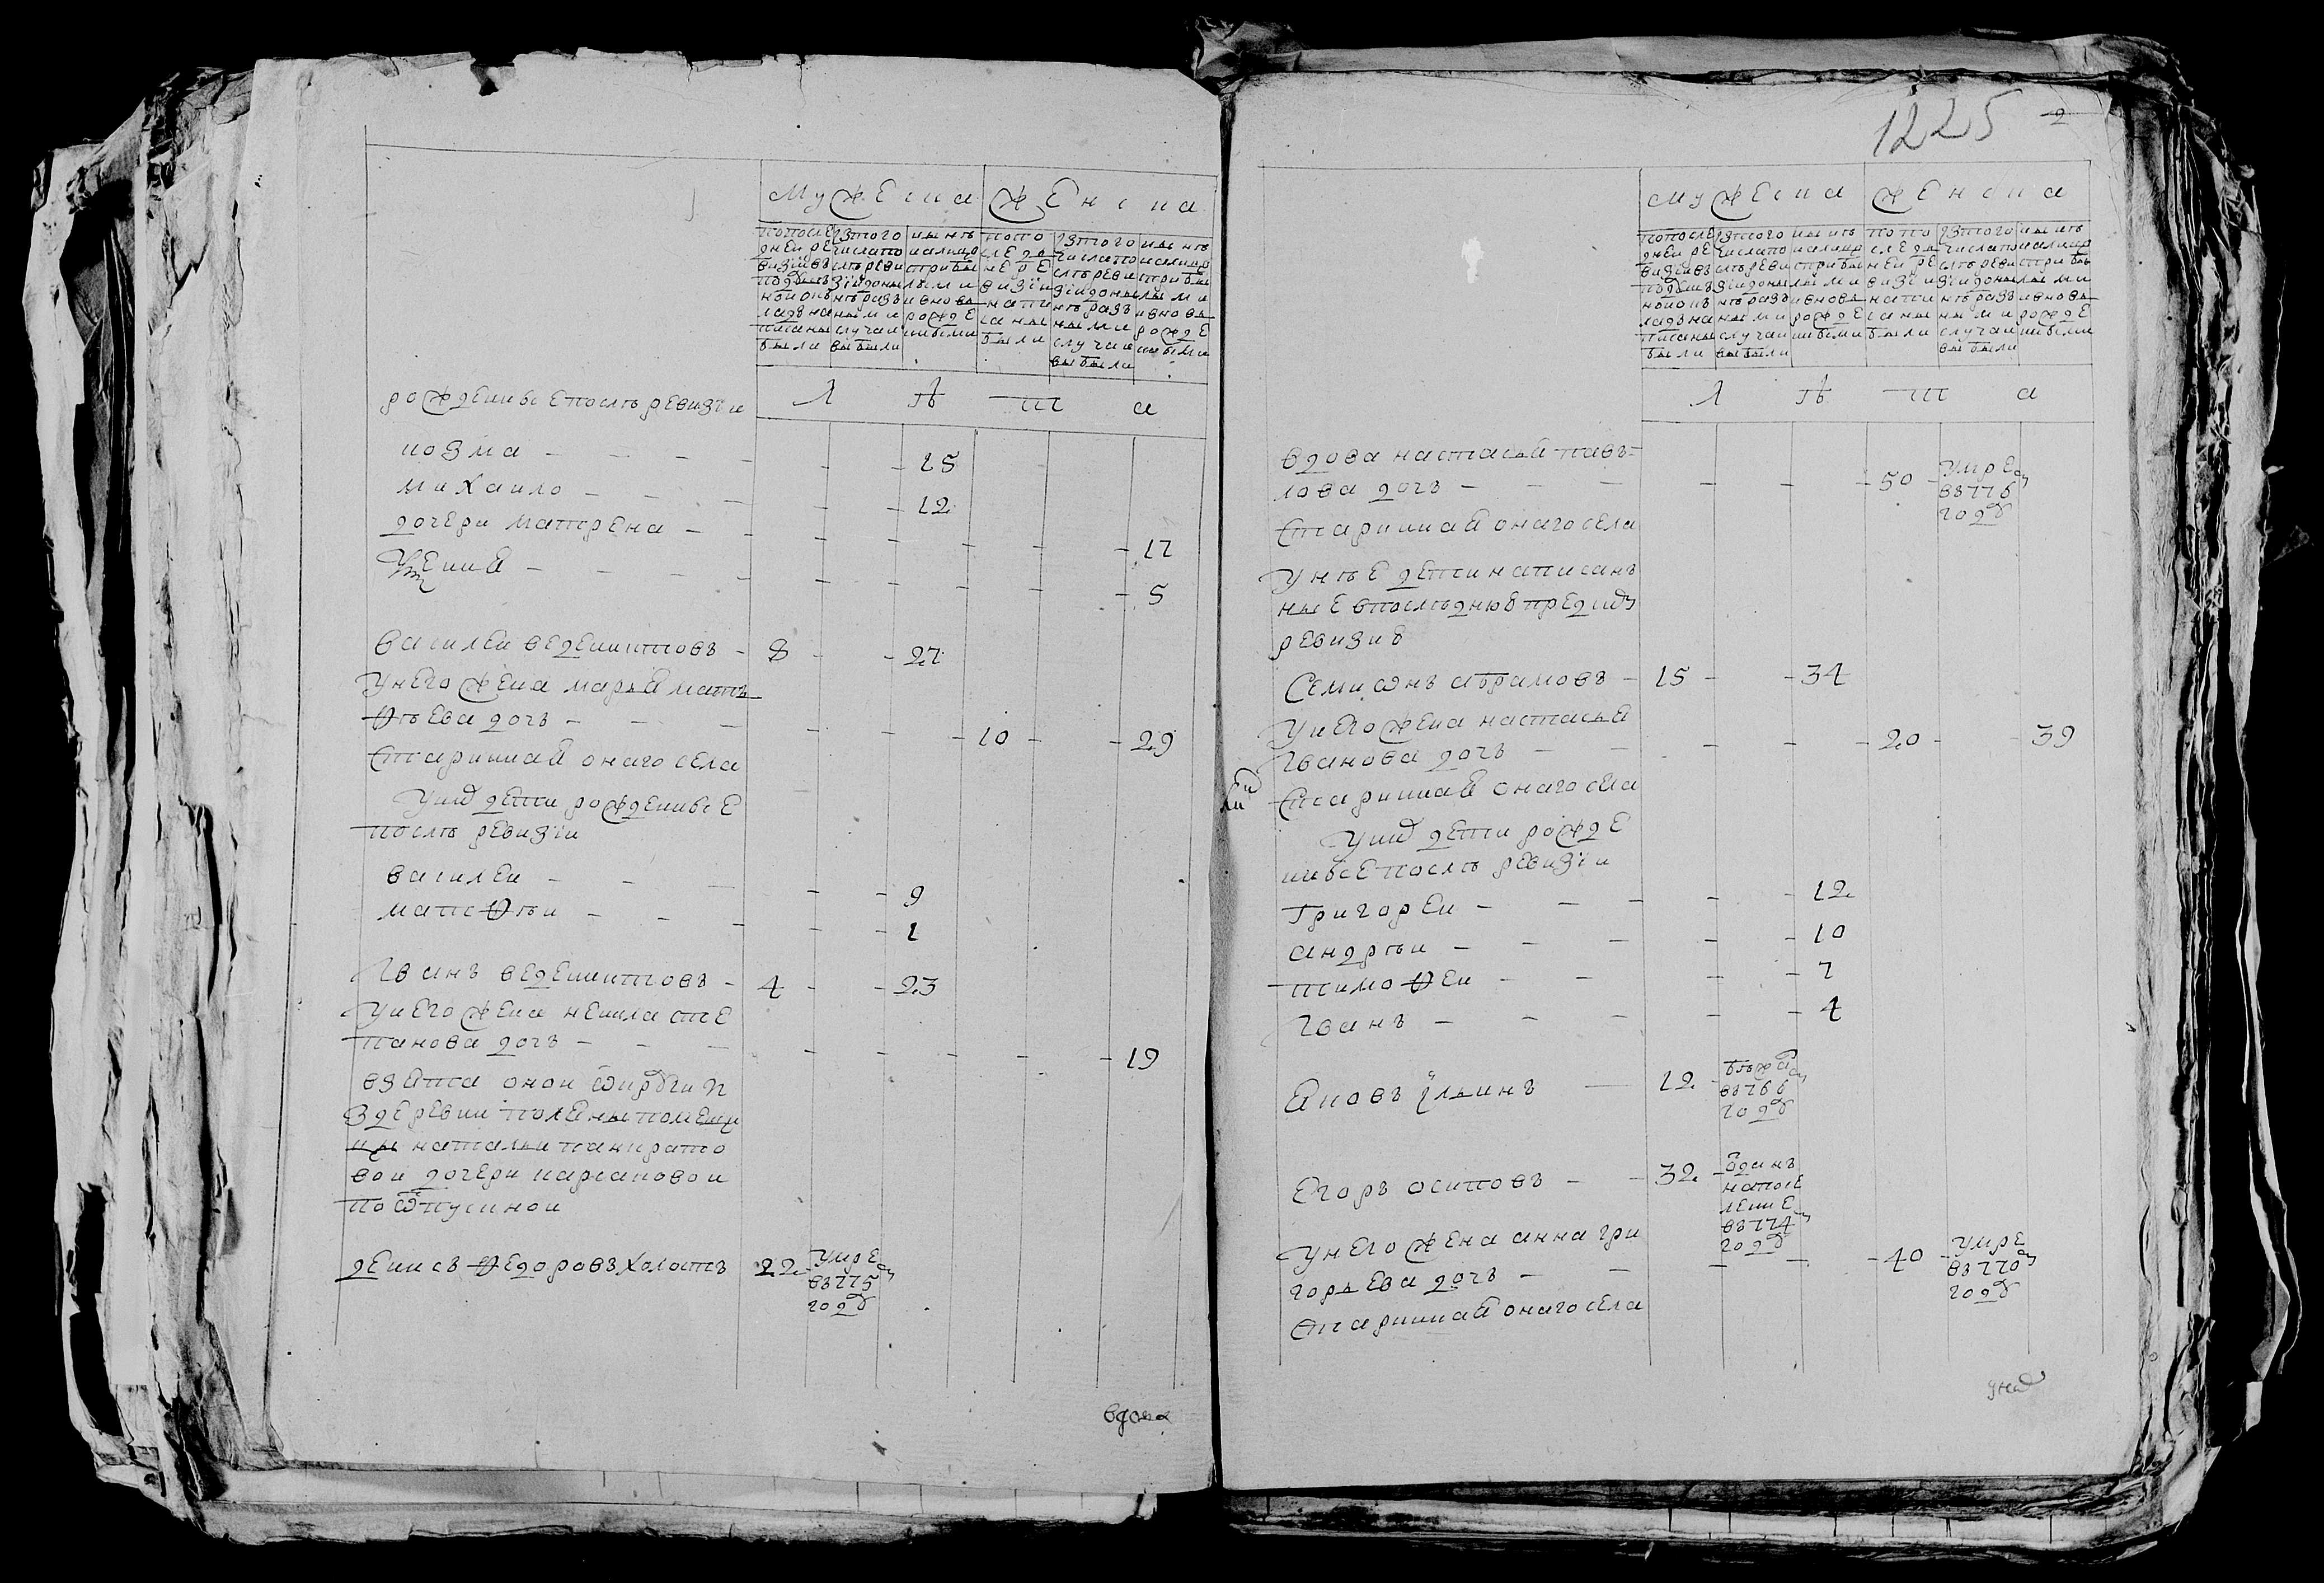 мужеска женска
попосле
дней ре
визиї въ
подушъ
ной окъ
ладъ на
писаны
были
изтого
числа по
слѣ реви
зїи доны
нѣ разъ
ными
случаи
выбыли
ны нѣ
на лицо
с прибы
лыми
и вновь
рожде
нными
попо
следъ
ней ре
визиї
напи
саны
были
изтого
числа по
слѣ реви
зїи доны
нѣ разъ
ными
случаи
выбыли
ны нѣ
на лицо
с прибы
лыми
и вновь
рожде
нными
лѣта
рожденные послѣ ревизїи
козма - - - - - - 15
михаило - - - - - 12
дочери матрена - - - - - - - 17
Устинья - - - - - - - - - 5
василеи ведениктовъ - 8 - - 27
у него жена марья матъ
фѣева дочь - - - - - - 10 - - 29
старинная онаго села
у нихъ дети рожденные
послѣ ревизїи
василеи - - - - - 9
матфѣи - - - - - 1
Iванъ ведениктовъ - 4 - - 23
у него жена ненила сте
панова дочь - - - - - - - - 19
взята онои
з деревни поляны помещи
цы натальи панкрато
вои дочери карсаковои
по отпускнои
денисъ федоровъ холостъ 22 - умре
въ 775
году
вдова
1225 2
мужеска женска
попосле
дней ре
визиї въ
подушъ
ной окъ
ладъ на
писаны
были
изтого
числа по
слѣ реви
зїи доны
нѣ разъ
ными
случаи
выбыли
ны нѣ
на лицо
с прибы
лыми
и вновь
рожде
нными
по по
следъ
ней ре
визиї
напи
саны
были
изтого
числа по
слѣ реви
зїи доны
нѣ разъ
ными
случаи
выбыли
ны нѣ
на лицо
с прибы
лыми
и вновь
рожде
нными
лѣта
вдова настасья павъ=
лова дочь - - - - - - 50 - умре
въ 776
году
старинная онаго села
у нѣе дети написанъ
ные в послѣднюю пред сею
ревизию
Семионъ абрамовъ - 15 - - 34
у него жена настасья
Iванова дочь - - - - - 20 - - 39
старинная онаго села
у нихъ дети рожде
нные послѣ ревизїи
григореи - - - - - 12
андрѣи - - - - - 10
тимофеи - - - - 7
Iванъ - - - - - 4
яковъ ильинъ — 12 - бежалъ
въ 766
году
егоръ осиповъ - - 32 - отданъ
на посе
ление
въ 774
году
у него жена анна гри
горьева дочь - - - - - 40 - умре
въ 770
году
старинная онаго села